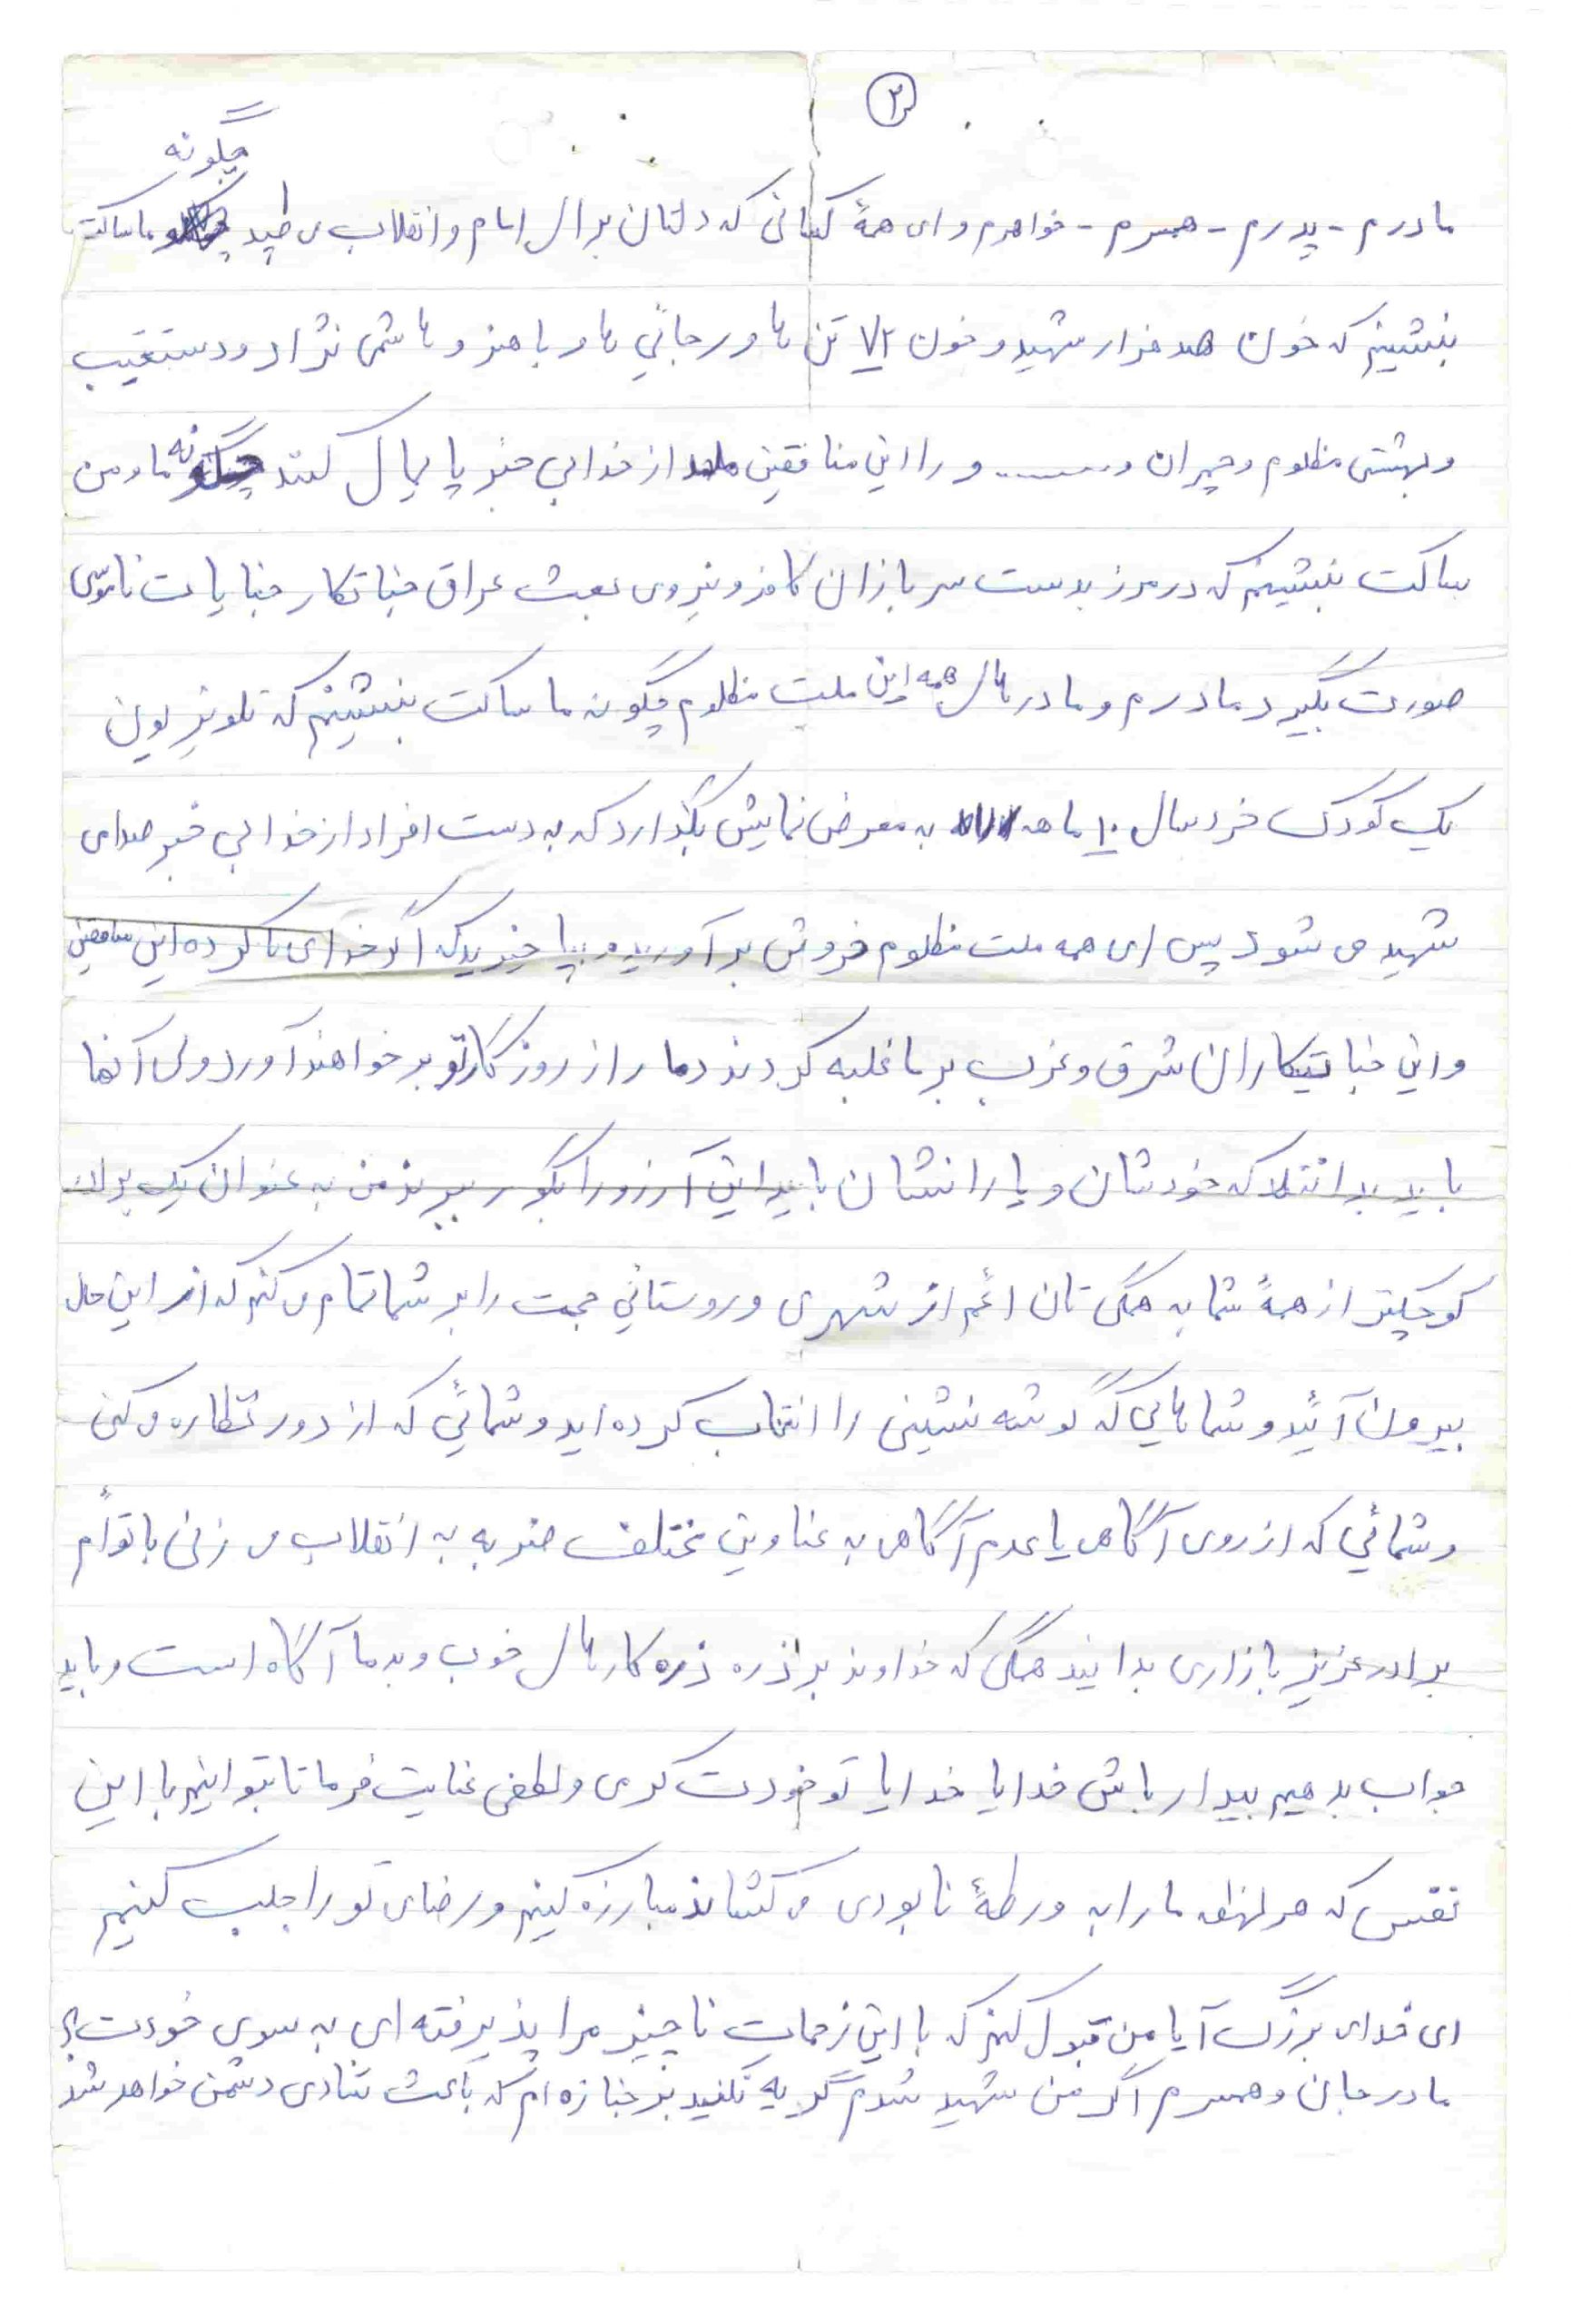 ۲
چگونه
مادرم - پدرم - همسرم - خواهرم و ای همهٔ کسانی که دلتان برای امام و انقلاب می طپد ما ساکت
بنشینیم که خون صد هزار شهید و خون ۷۲ تن ها و رجائی ها و باهنر و هاشمی نژاد و دستغیب
و بهشتی مظلوم و چمران و ........ و را این منافقین از خدا بی خبر پایمال کنند چگونه ما و من
ساکت بنشینیم که در مرز بدست سربازان کافر و نیروی بعث عراق جنایتکار جنایات ناموسی
صورت بگیرد مادرم و مادرهای همه این ملت مظلوم چگونه ما ساکت بنشینیم که تلویزیون
یک کودک خردسال ۱۰ ماهه به معرض نمایش بگذارد که به دست افراد از خدا بی خبر صدای
شهید می شود پس ای همه ملت مظلوم خروش برآورید و بپا خیزید که اگر خدای ناکرده این منافقین
و این جنایتکاران شرق و غرب بر ما غلبه کردند دمار از روزگارتو بر خواهند آورد ولی آنها
باید بدانند که خودشان و یارانشان باید این آرزو را بگور ببرند من به عنوان یک برادر
کوچکتر از همهٔ شما به همگی تان اعم از شهری و روستائی حجت را بر شما تمام می کنم که از این حال
بیرون آئید و شماهایی که گوشه نشینی را انتخاب کرده اید و شمائی که از دور نظاره می کنی
و شمائی که از روی آگاهی یا عدم آگاهی به عناوین مختلف ضربه به انقلاب می زنی با توأم
برادر عزیز بازاری بدانید همگی که خداوند بر ذره ذره کارهای خوب و بد ما آگاه است و باید
جواب بدهیم بیدار باش خدایا خدایا تو خودت کرمی و لطفی عنایت فرما تا بتوانیم با این
نفس که هر لحظه ما را به ورطهٔ نابودی می کشاند مبارزه کنیم و رضای تو را جلب کنیم
ای خدای بزرگ آیا من قبول کنم که با این زحمات ناچیز مرا پذیرفته ای به سوی خودت؟
مادر جان و همسرم اگر من شهید شدم گریه نکنید بر جنازه ام که باعث شادی دشمن خواهد شد